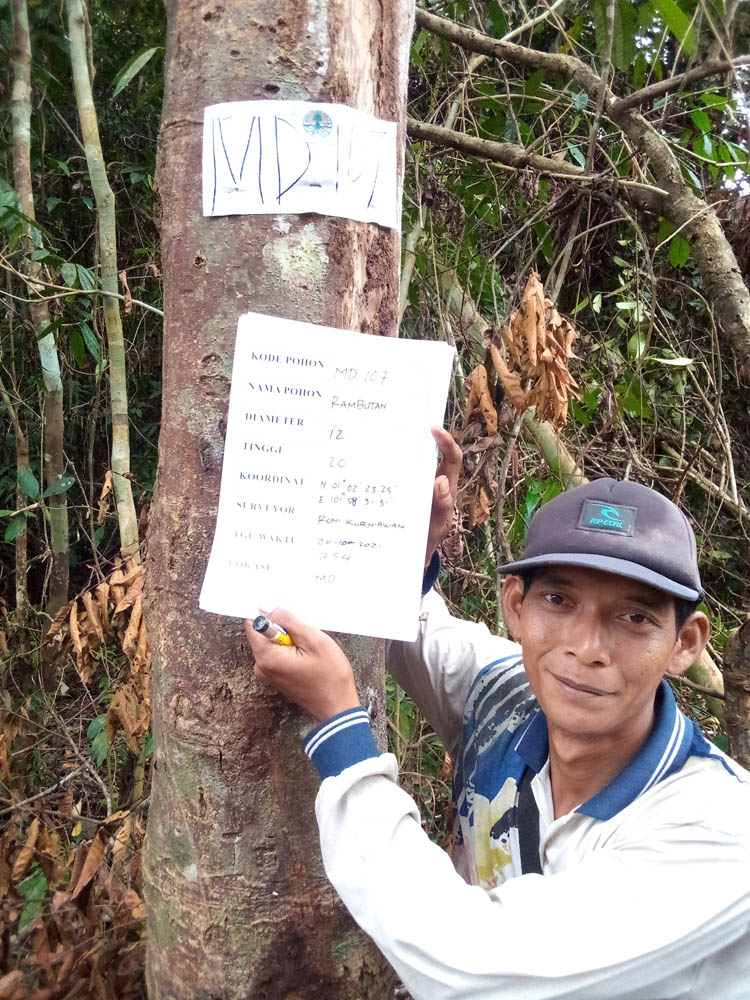 MD-107
KODE POHON MD 107
NAMA POHON RAMBUTAN
DIAMETER 12
TINGGI 20
KOORDINAT N 01° 02' 23.25"
E 101° 58' 31.31"
SURVEYOR RONI KURNIAWAN
TGL WAKTU 20-10-202
10.54
LOKASI MD
RIP CURL